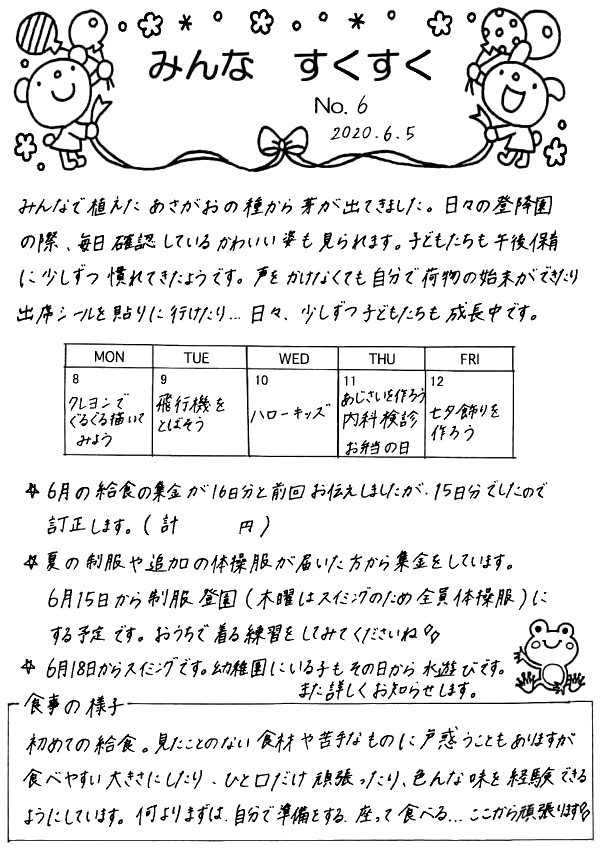 みんな すくすく
No. 6
2020.6.5
みんなで植えた あさがおの種から芽が出てきました。日々の登降園
の際、毎日確認しているかわいい姿も見られます。子どもたちも午後保育
に少しずつ慣れてきたようです。声をかけなくても自分で荷物の始末ができたり
出席シールを貼りに行けたり…日々、少しずつ子どもたちも成長中です。
MON TUE WED THU FRI
8 9 10 11 12
クレヨンで
ぐるぐる描いて
みよう
飛行機を
とばそう
ハローキッズ
あじさいを作ろう
内科検診
お弁当の日
七夕飾りを
作ろう
☆ 6月の給食の集金が16日分と前回お伝えしましたが、15日分でしたので
訂正します。(計 円)
☆ 夏の制服や追加の体操服が届いた方から集金をしています。
6月15日から制服登園(木曜はスイミングのため全員体操服)に
する予定です。おうちで着る練習をしてみてくださいね
☆ 6月18日からスイミングです。幼稚園にいる子もその日から水遊びです。
また詳しくお知らせします。
食事の様子
初めての給食。見たことのない食材や苦手なものに戸惑うこともありますが
食べやすい大きさにしたり、ひと口だけ頑張ったり、色んな味を経験できる
ようにしています。何よりまずは、自分で準備をする、座って食べる…ここから頑張ります